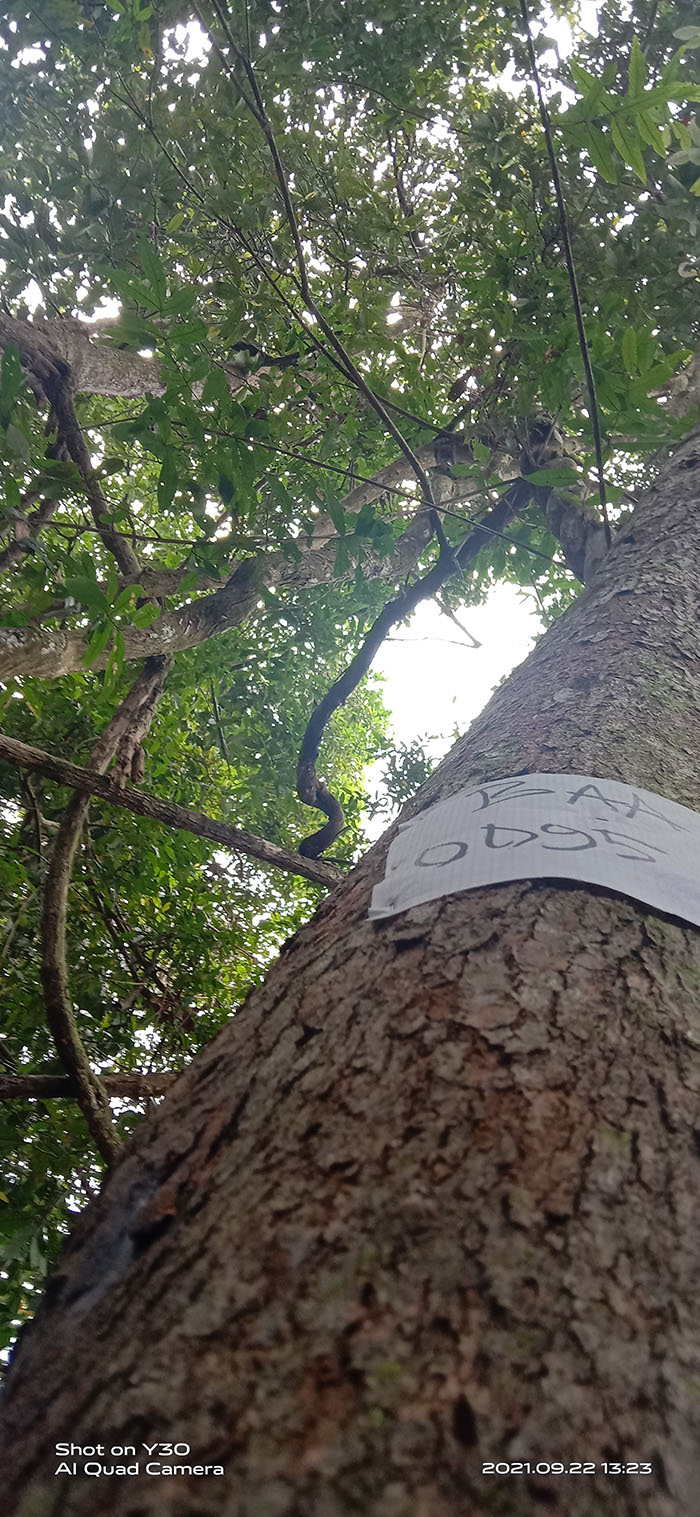 BAA
0D95
Shot on Y30
AI Quad Camera
2021.09.22 13:23